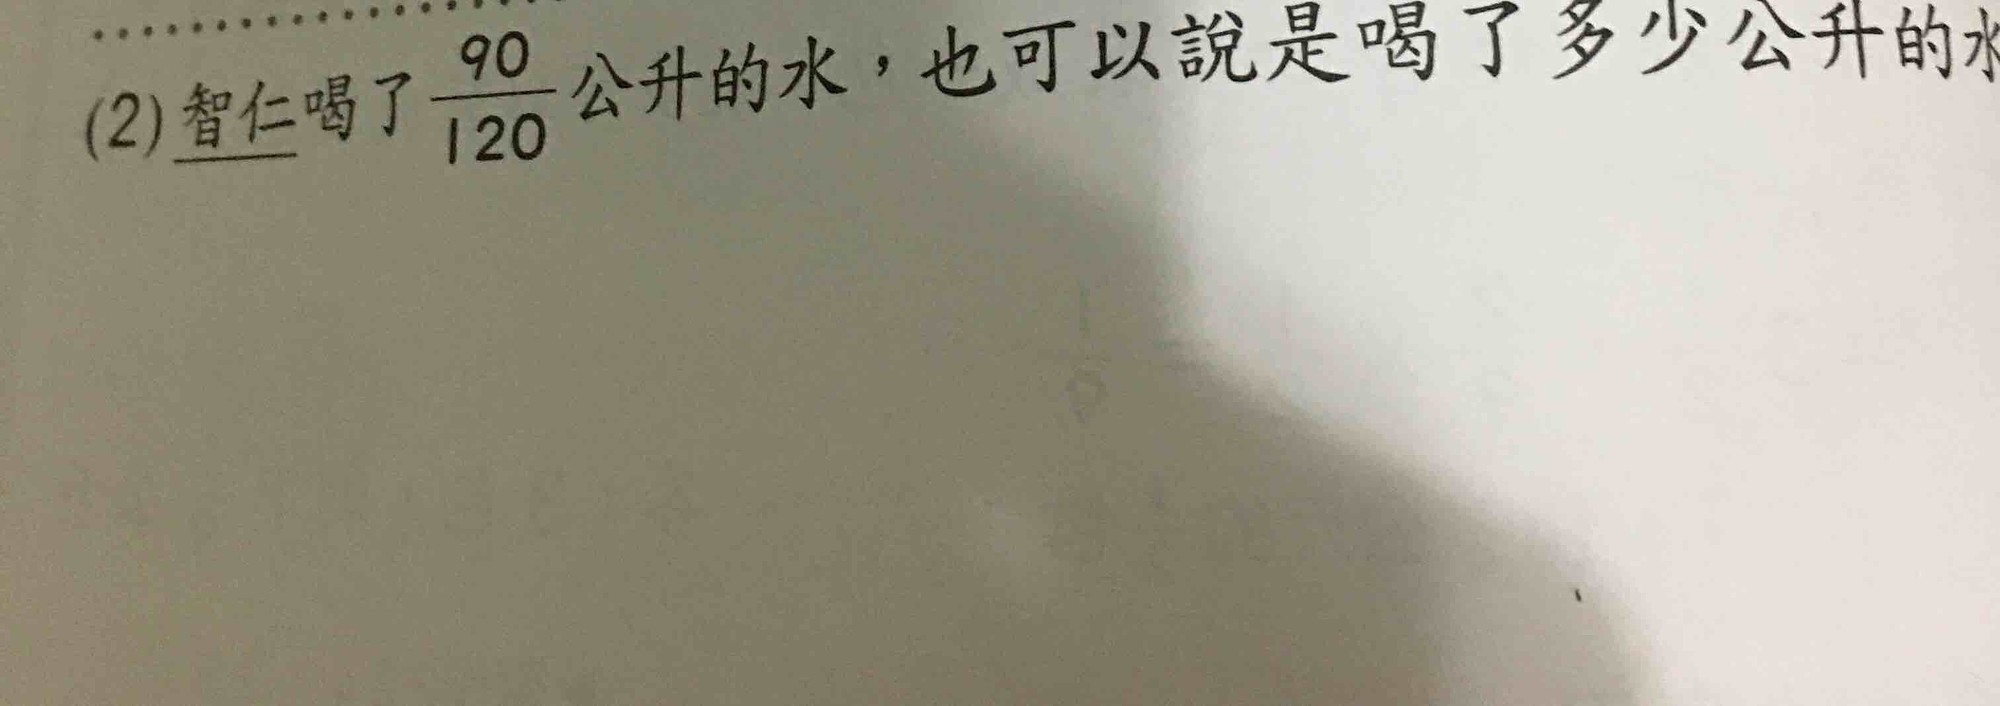 (2)智仁喝了90/120公升的水，也可以說是喝了多少公升的水